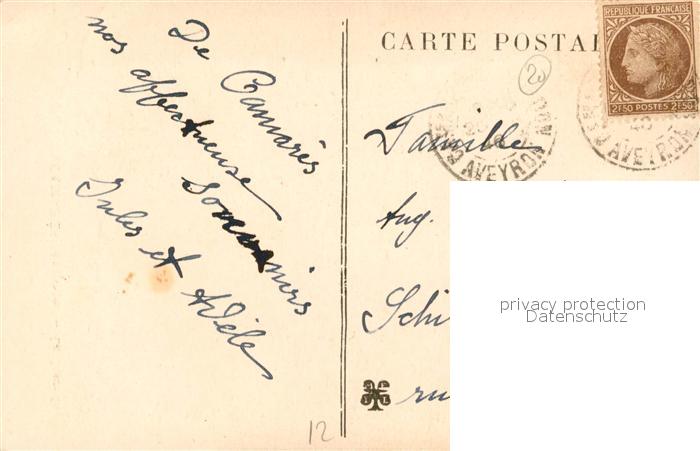 De Camarès
nos affectueuse
Souvenirs
Jules et Adèle
12
CARTE POSTAL
20
REPUBLIQUE FRANÇAISE
2F50 POSTES 2F50
AVEYRON
AVEYRON
Famille
Aug.
Schi
ru
privacy protection
Datenschutz